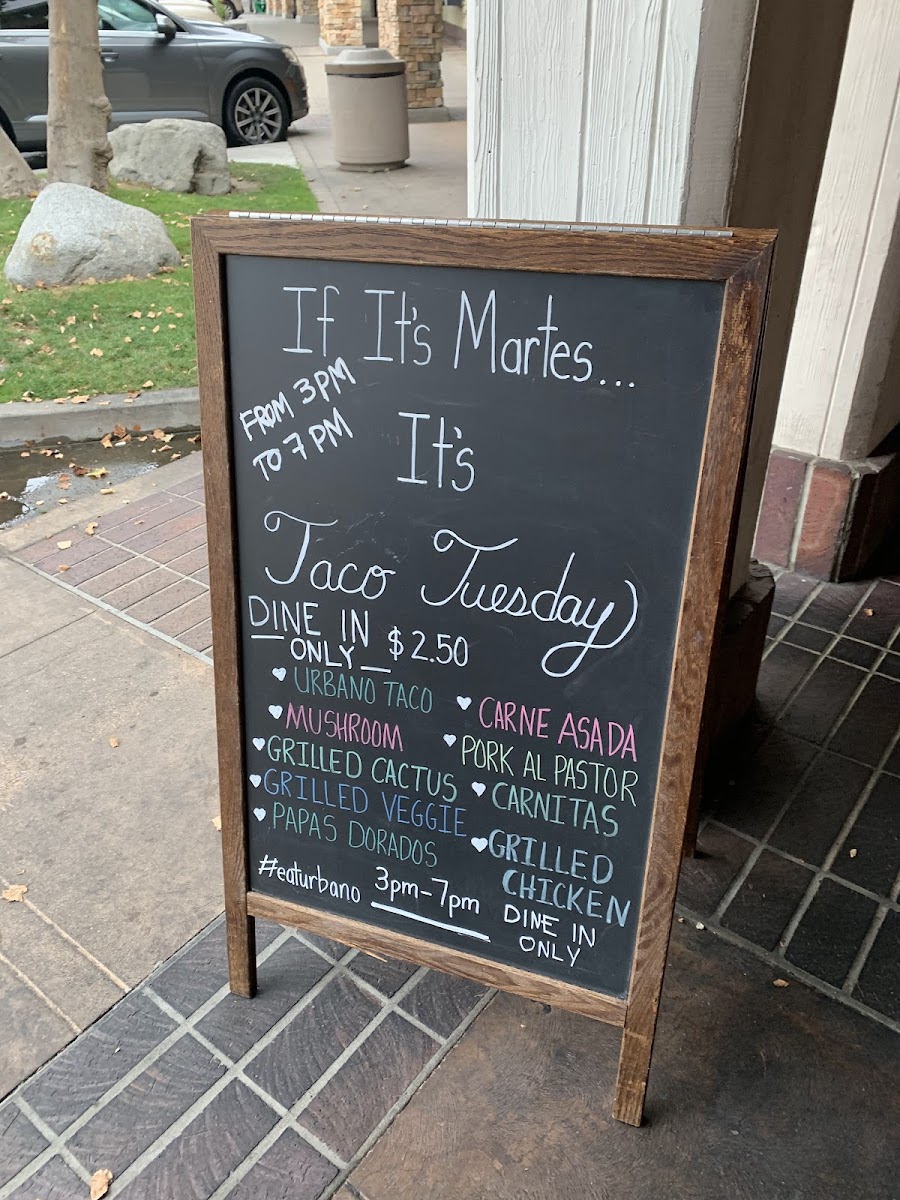 If It's Martes...
FROM 3PM
TO 7PM
It's
Taco Tuesday
DINE IN
ONLY
$2.50
URBANO TACO
MUSHROOM
GRILLED CACTUS
GRILLED VEGGIE
PAPAS DORADOS
CARNE ASADA
PORK AL PASTOR
CARNITAS
GRILLED
CHICKEN
#eaturbano
3pm-7pm
DINE IN
ONLY